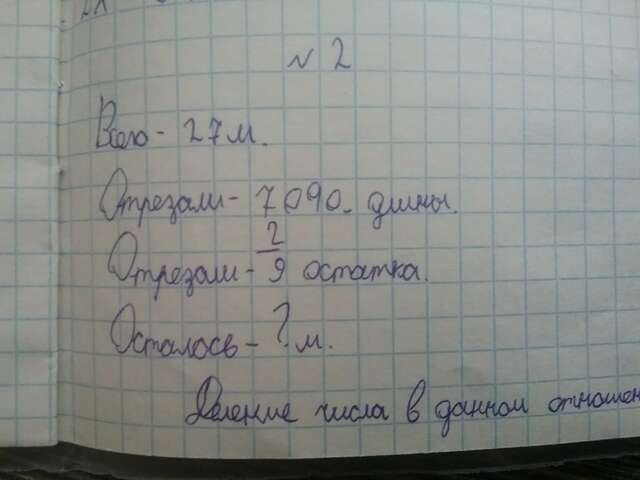 № 2
Всего - 27 м.
Отрезали - 70%. длины.
Отрезали - 2/9 остатка.
Осталось - ? м.
Деление числа в данном отношен